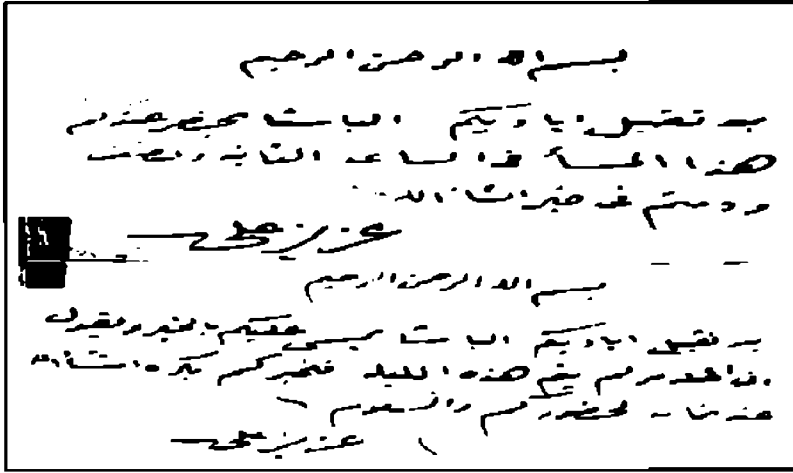 بسم الله الرحمن الرحيم
بعد تقبيل اياديكم الباشا يحضر عندكم
هذا المسأ في الساعه الثانيه والنصف
ودمتم في خير انشا الله
عزيز علي
بسم الله الرحمن الرحيم
بعد تقبيل اياديكم الباشا يمسي عليكم بالخير ويقول
هذه الليله نخبركم بكره انشأ الله
لحضوركم والسلام
عزيز علي